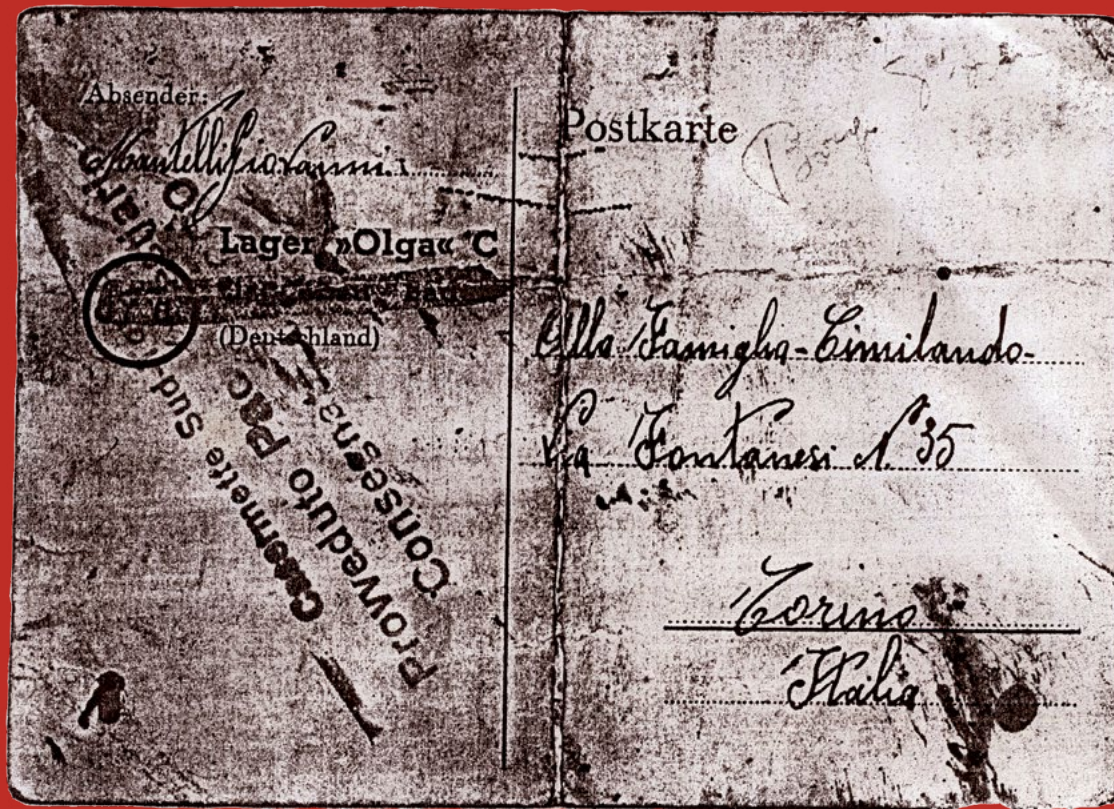 Absender:
Mantelli Giovanni
Lager »Olga« C
(Deutschland)
Casermette Sud
Provveduto Pac
Consegna
Postkarte
Alla Famiglia - Cimilando -
Via Fontanesi N 35
Torino
Italia